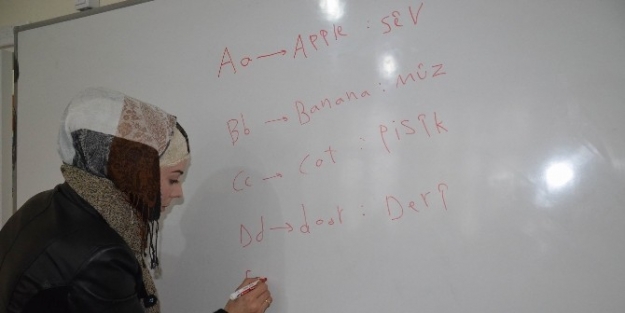 Aa → Apple : sêV
Bb → Banana : mûz
Cc → Cat : pisîk
Dd → door : Derî